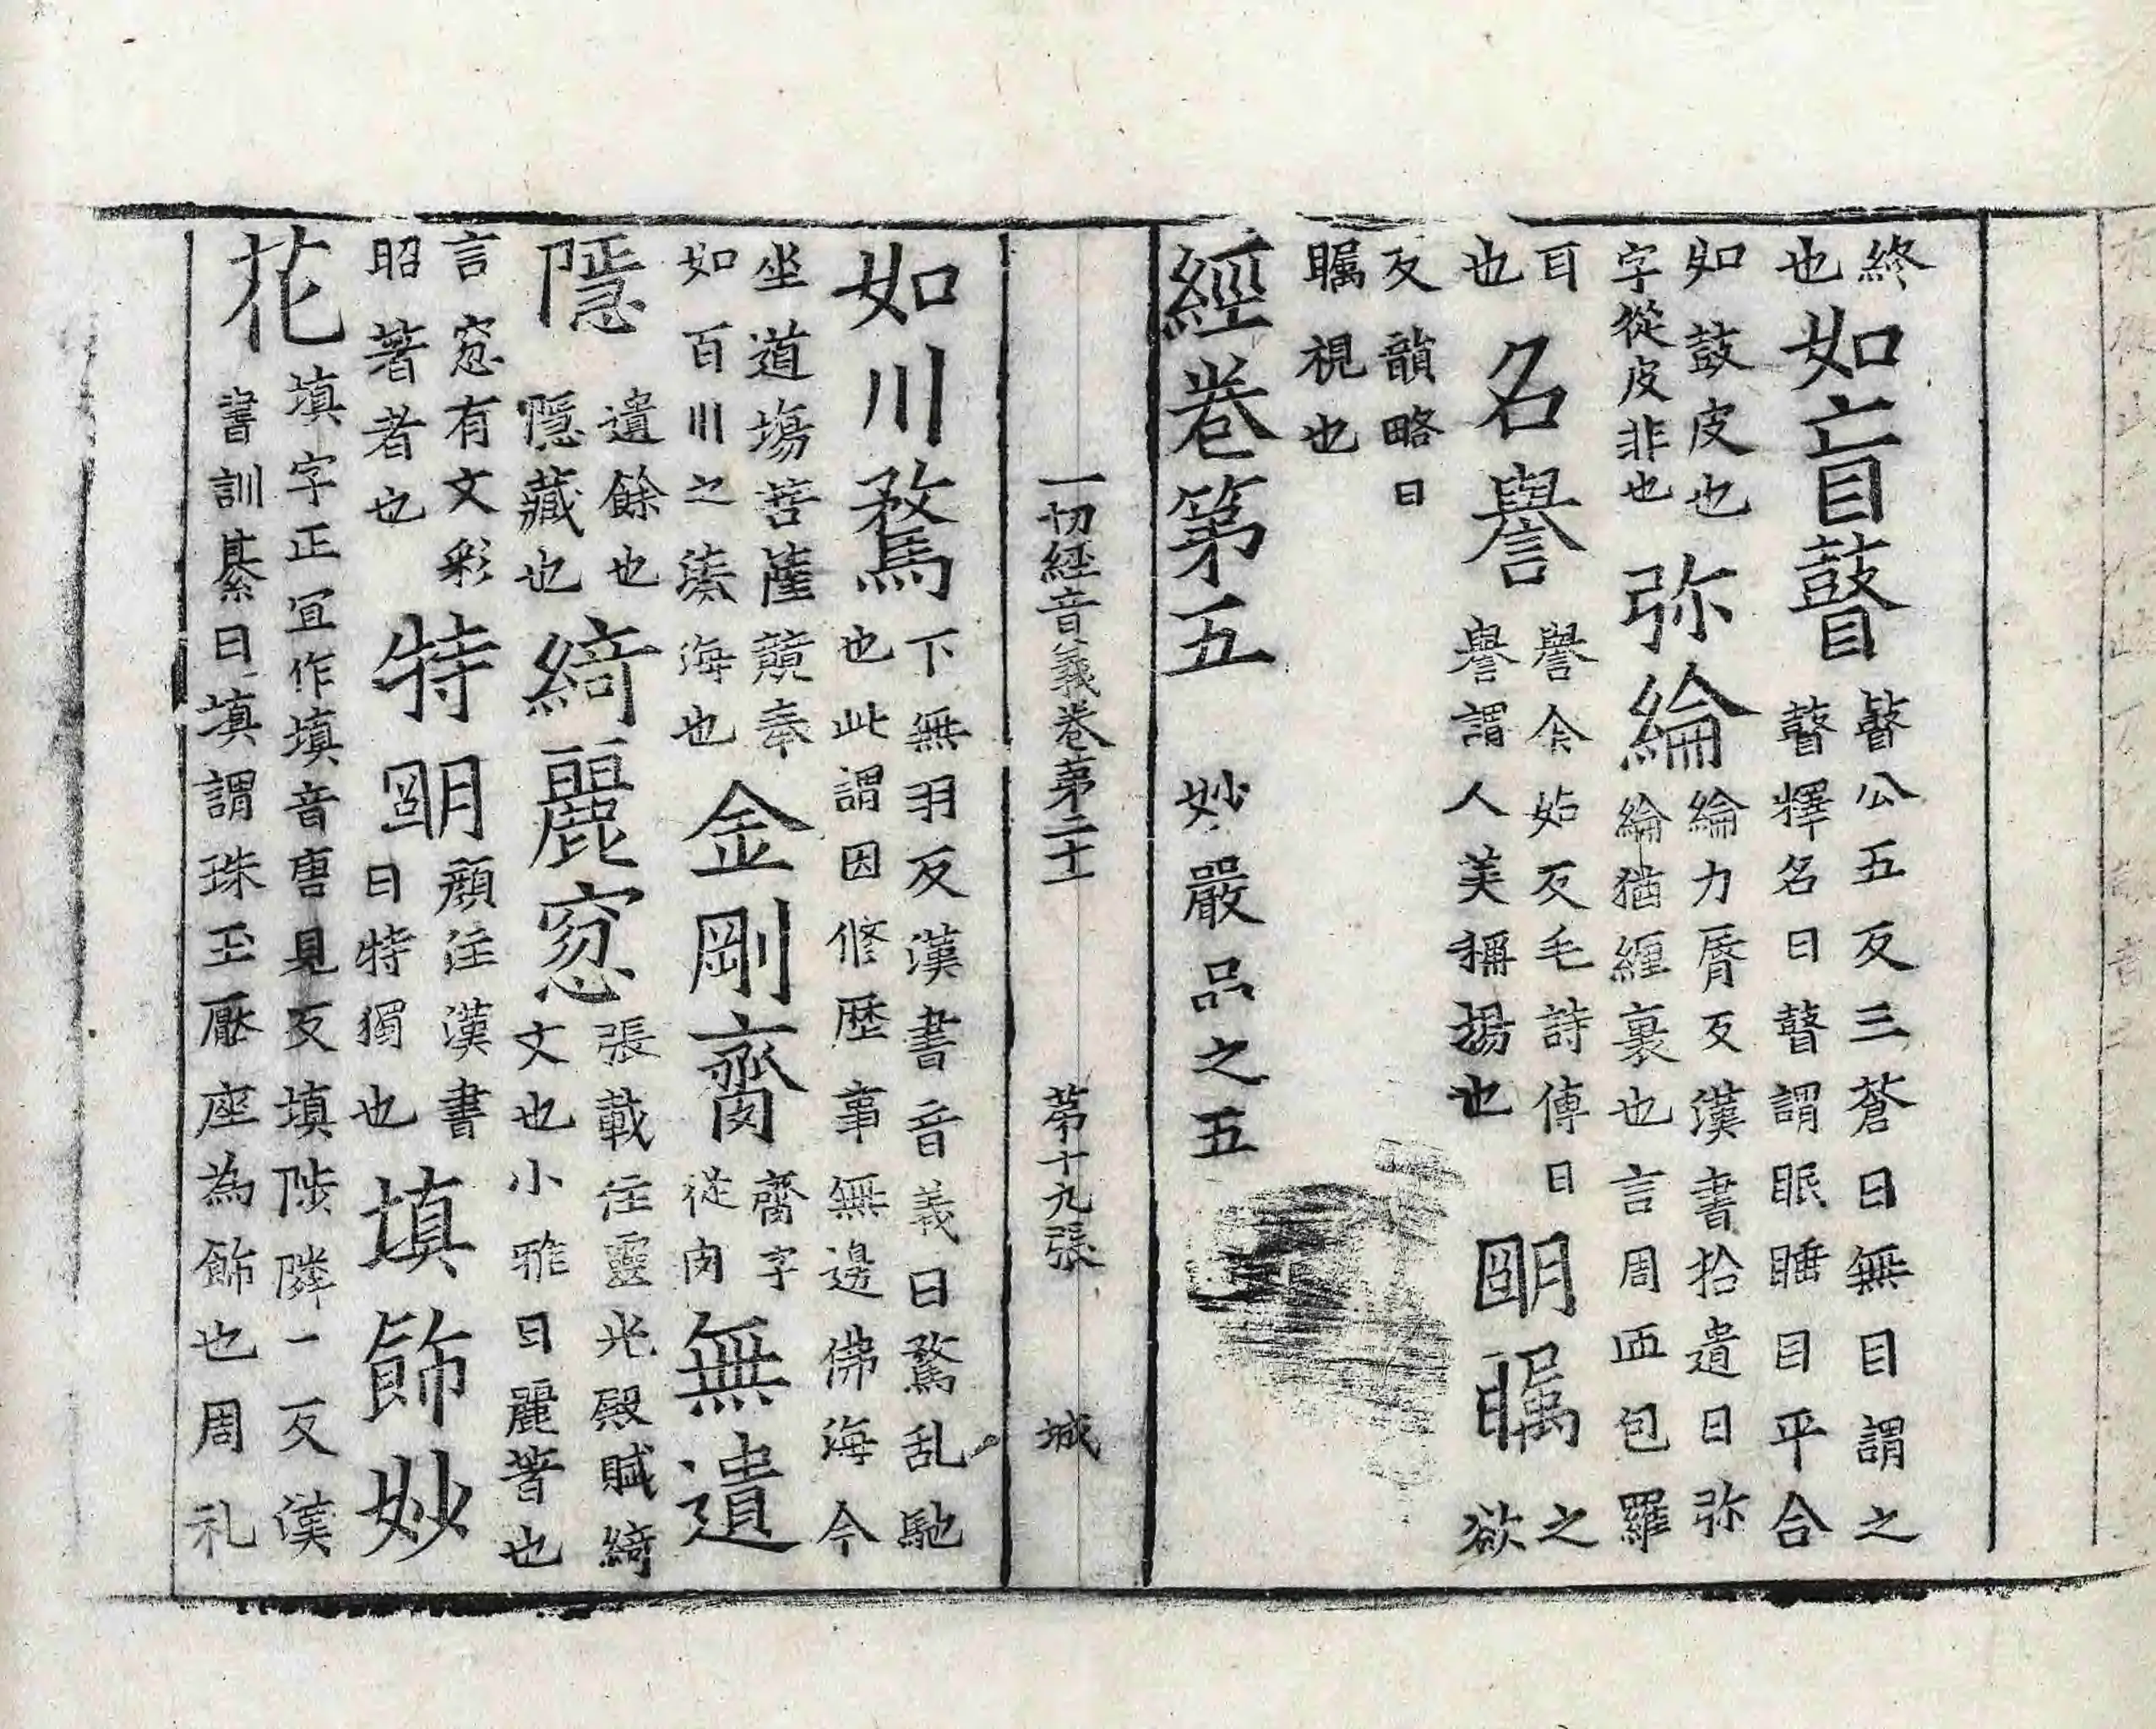 終也如盲瞽瞽公五反三蒼曰無目謂之瞽釋名曰瞽謂眠睡目平合
如鼓皮也字從皮非也弥綸綸力脣反漢書拾遺曰弥綸猶纏裹也言周帀包羅
耳也名譽譽余姑反毛詩傳曰譽謂人美稱揚也朙矚之欲
反韻略曰矚視也
經卷第五 妙嚴品之五
一切經音義卷第二十一 第十九張 城
如川騖下無羽反漢書音義曰騖乱馳也此謂因修歷事無邊佛海今
坐道場菩薩競奉如百川之湊海也金剛齎齎字從肉無遺
隱遺餘也隱藏也綺麗窓張載注靈光殿賦綺文也小雅曰麗著也
言窓有文彩昭著者也特朙顏注漢書曰特獨也填飾妙
花填字正冝作填音唐見反填陟隣一反漢書訓纂曰填謂珠玉壓座為飾也周礼